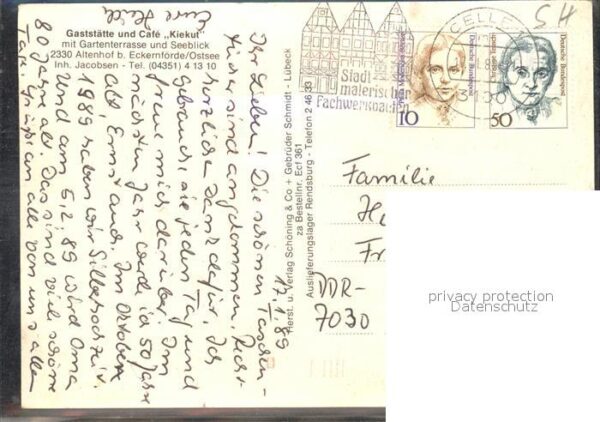 Gaststätte und Café „Kiekut"
mit Gartenterrasse und Seeblick
2330 Altenhof b. Eckernförde/Ostsee
Inh. Jacobsen - Tel. (04351) 4 13 10
17.1.89
Ihr Lieben! Die schönen Taschen-
tücher sind angekommen. Recht
herzlichen Dank dafür. Ich
gebrauche sie jeden Tag und
freue mich darüber. Im
nächsten Jahr werde ich 50 Jahre
alt, Ernst auch. Im Oktober
1989 haben wir Silberhochzeit.
Und am 5.2.89 wird Oma
80 Jahre alt. Das sind viel schöne
Tage. Grüße an alle von uns allen
Eure Heidi
Herst. u. Verlag Schöning & Co + Gebrüder Schmidt - Lübeck
za Bestellnr. Ecf 361
Auslieferungslager Rendsburg - Telefon 2 46 33
Stadt
malerischer
Fachwerkbauten
CELLE
3100
Deutsche Bundespost
10
Deutsche Bundespost
50
SH
Familie
He
Fr
DDR-
7030
privacy protection
Datenschutz